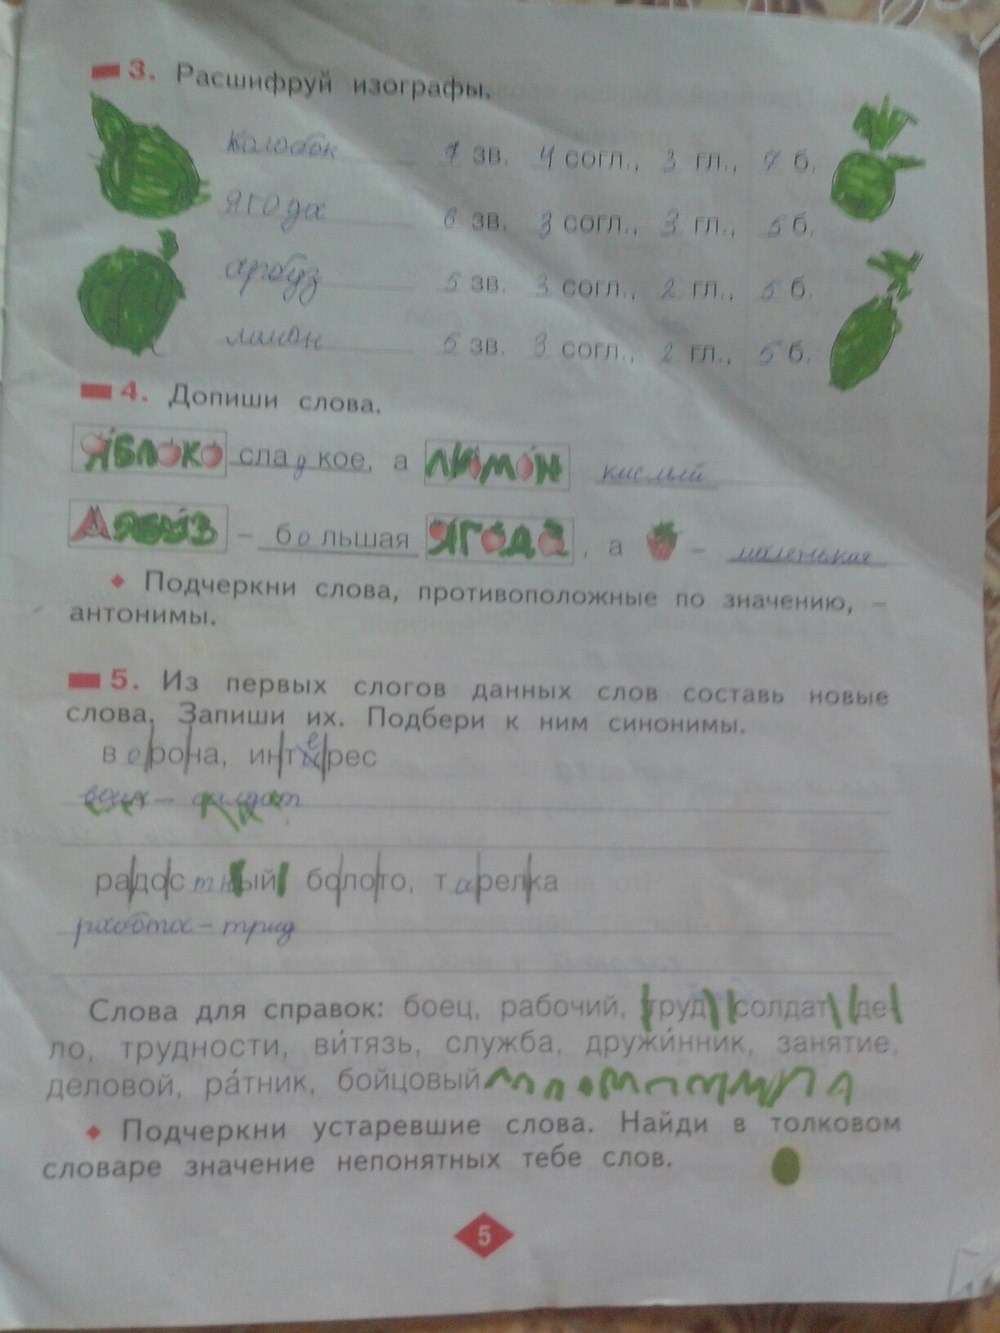 3. Расшифруй изографы.
колобок 7 зв. 4 согл., 3 гл., 7 б.
ягода 6 зв. 3 согл., 3 гл., 5 б.
арбуз 5 зв. 3 согл., 2 гл., 5 б.
лимон 5 зв. 3 согл., 2 гл., 5 б.
4. Допиши слова.
ЯБЛОКО сладкое, а кислый
– большая ЯГОДА, а – маленькая
Подчеркни слова, противоположные по значению, –
антонимы.
5. Из первых слогов данных слов составь новые
слова. Запиши их. Подбери к ним синонимы.
ворона, интерес
воин – солдат
радостный, болото, тарелка
работа – труд
Слова для справок: боец, рабочий, труд, солдат, де
ло, трудности, ви́тязь, служба, дружи́нник, занятие,
деловой, ра́тник, бойцовый
Подчеркни устаревшие слова. Найди в толковом
словаре значение непонятных тебе слов.
5